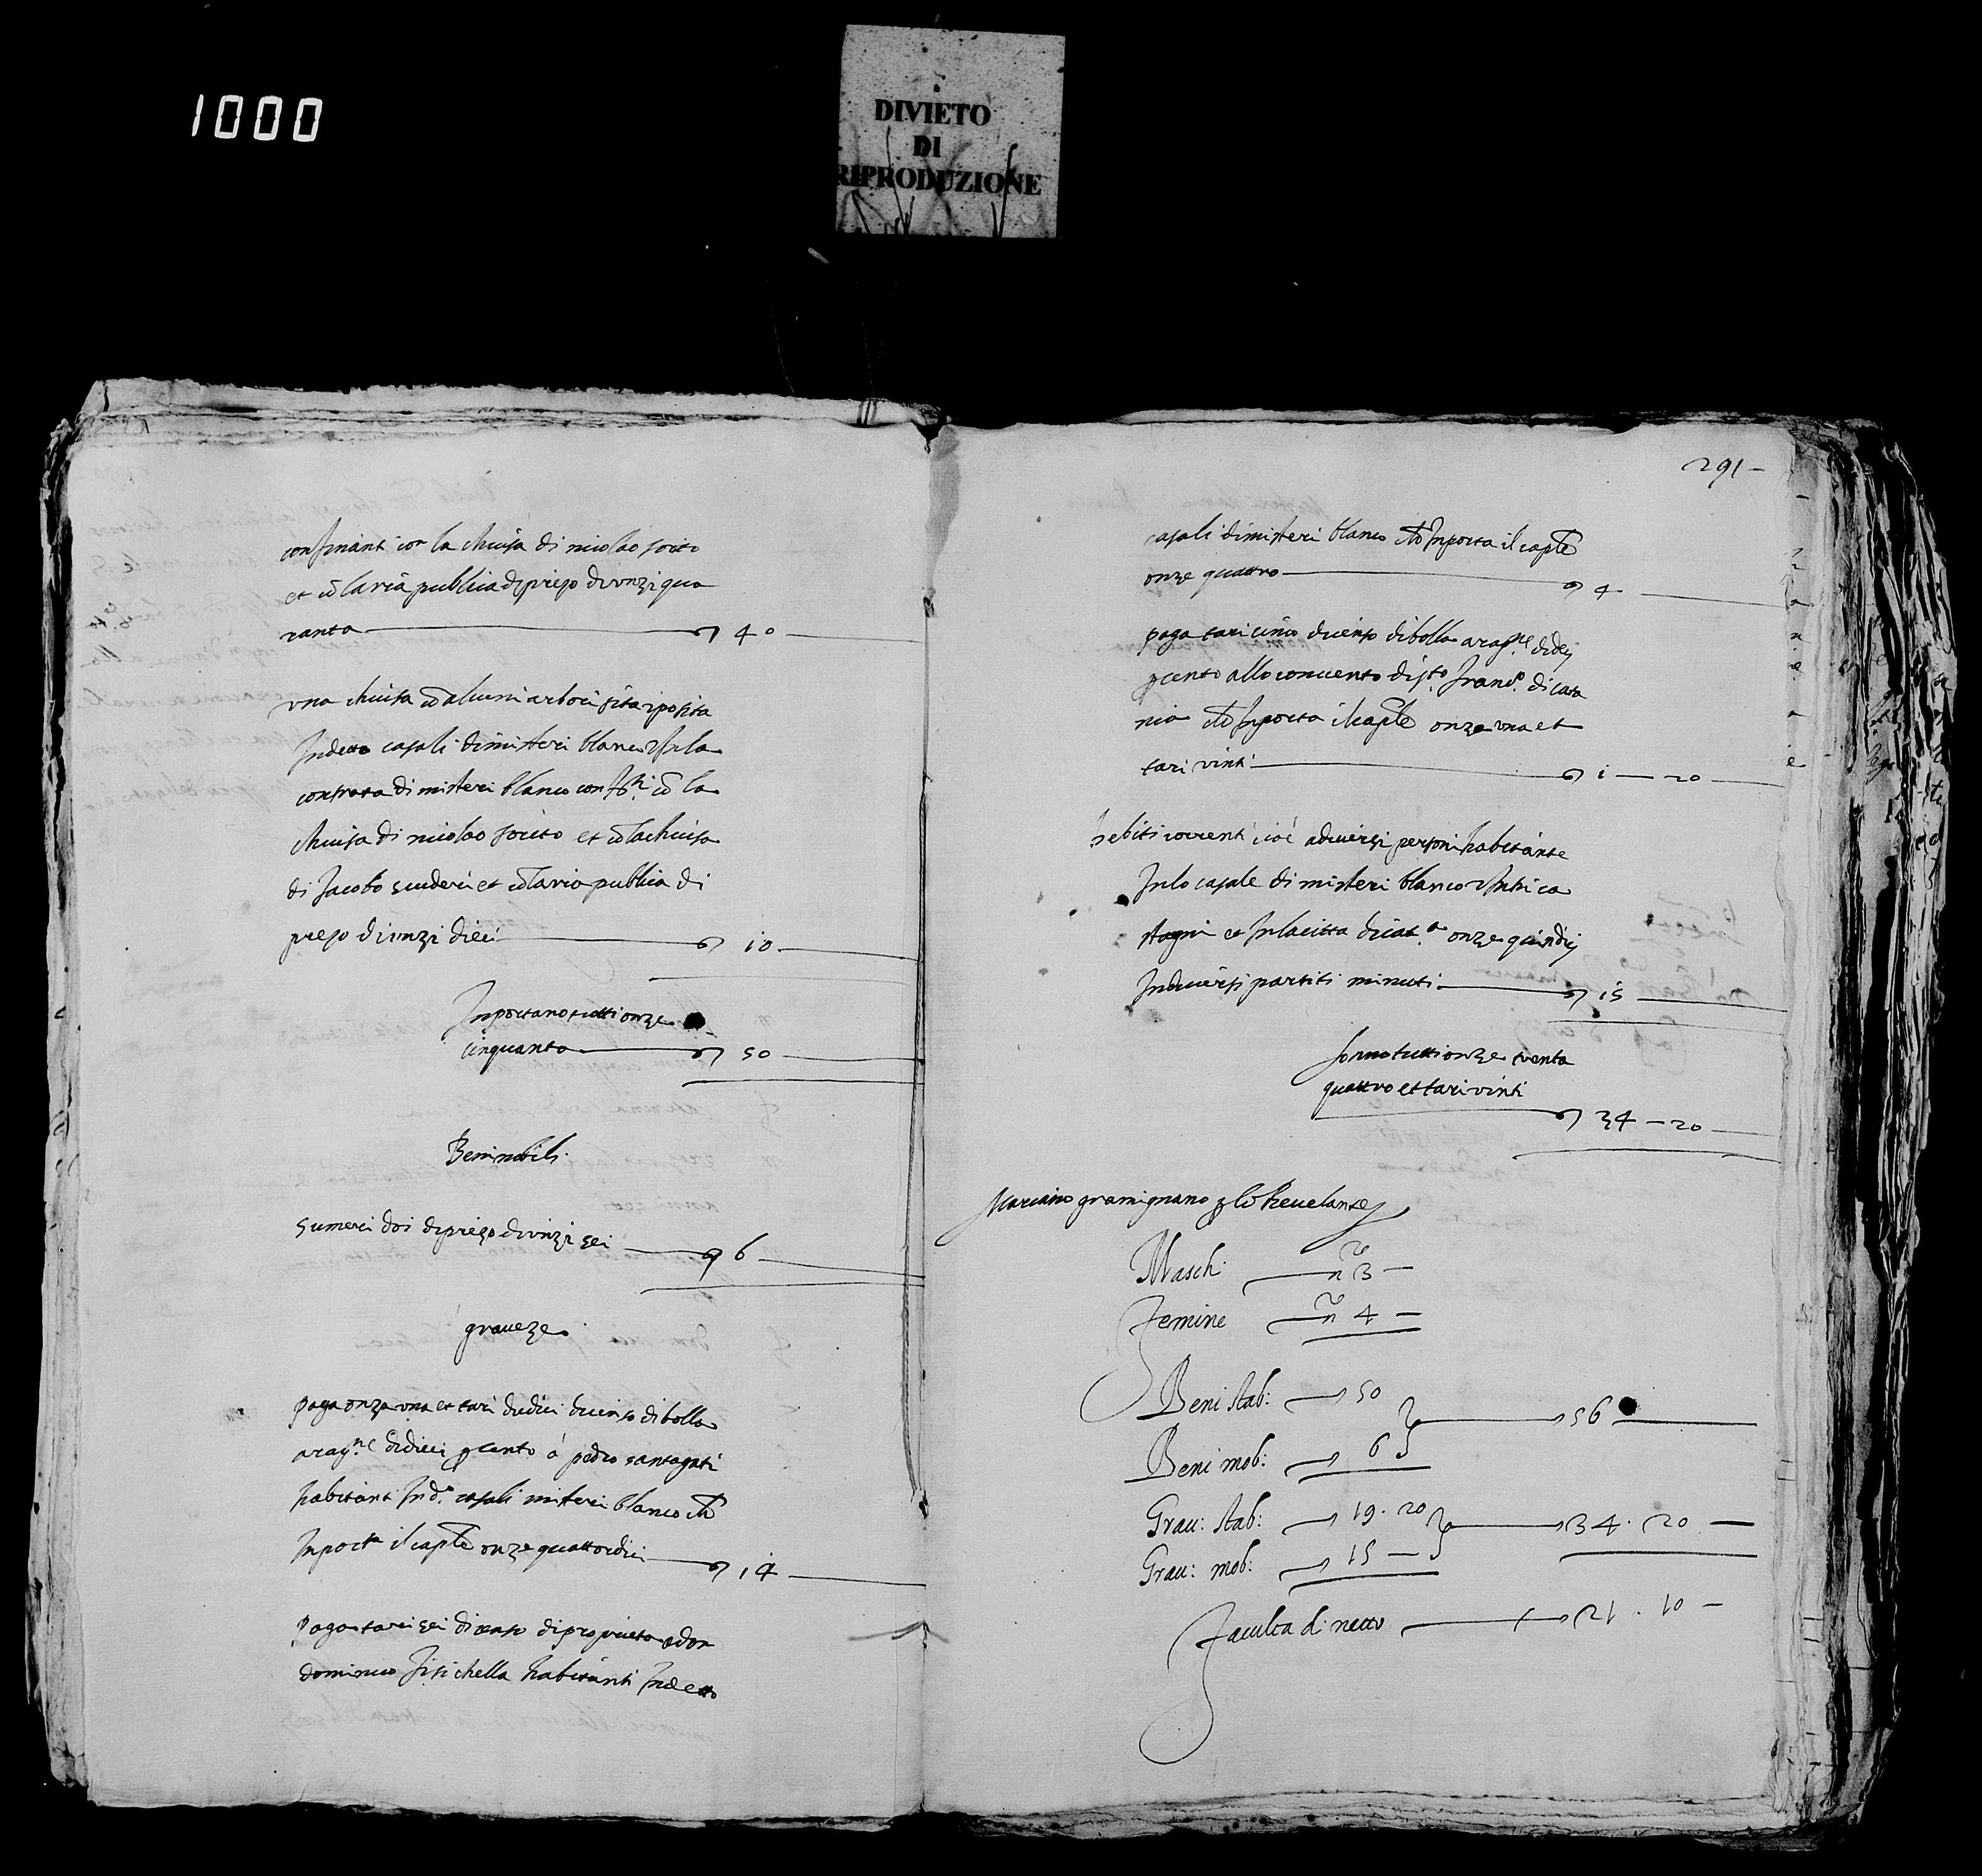 1000
DIVIETO
DI
RIPRODUZIONE
confinanti con la chiusa di nicolao
et cō la via publica di prezo di vnzi qua
ranta 40
vna chiusa cō alcuni arbori sita i posita
In detto casali di misteri blanco In la
contrata di misteri blanco conf.ti cō la
chiusa di nicolao et cō la chiusa
di Jacobo scuderi et cō la via publica di
prezo di vnzi dieci 10
Inportano tutti onze
cinquanta 50
Beni mobili
sumeri doi di prezo di vnzi sei 6
graueze
paga onza vna et tari dudici di censo di bolla
arag.ne di dieci p cento à pedro santagati
habitanti In d.o casali misteri blanco
Inporta il cap.le onze quattordici 14
Paga tari sei di censo di proprieta a don
dominico fisichella habitanti In detto
291
casali di misteri blanco Inporta il cap.le
onze quattro 4
paga tari cinco di censo di bolla arag.ne di decj
p cento allo conuento di s.to Franc.o di cata
nia Inporta il cap.le onze vna et
tari vinti 1 — 20
debiti correnti cioè a diuersi personi habitante
In lo casale di misteri blanco
et In la citta di cat.a onze quindicj
In diuersi partiti minuti 15
sonno tutti onze trenta
quattro et tari vinti
34 — 20
Mariano gramignano p lo Reuelante
Maschi n 3
Femine n 4
Beni stab: 50
56
Beni mob: 6
Grau: stab: 19. 20
34. 20
Grau: mob: 15
Faculta di netto 21. 10